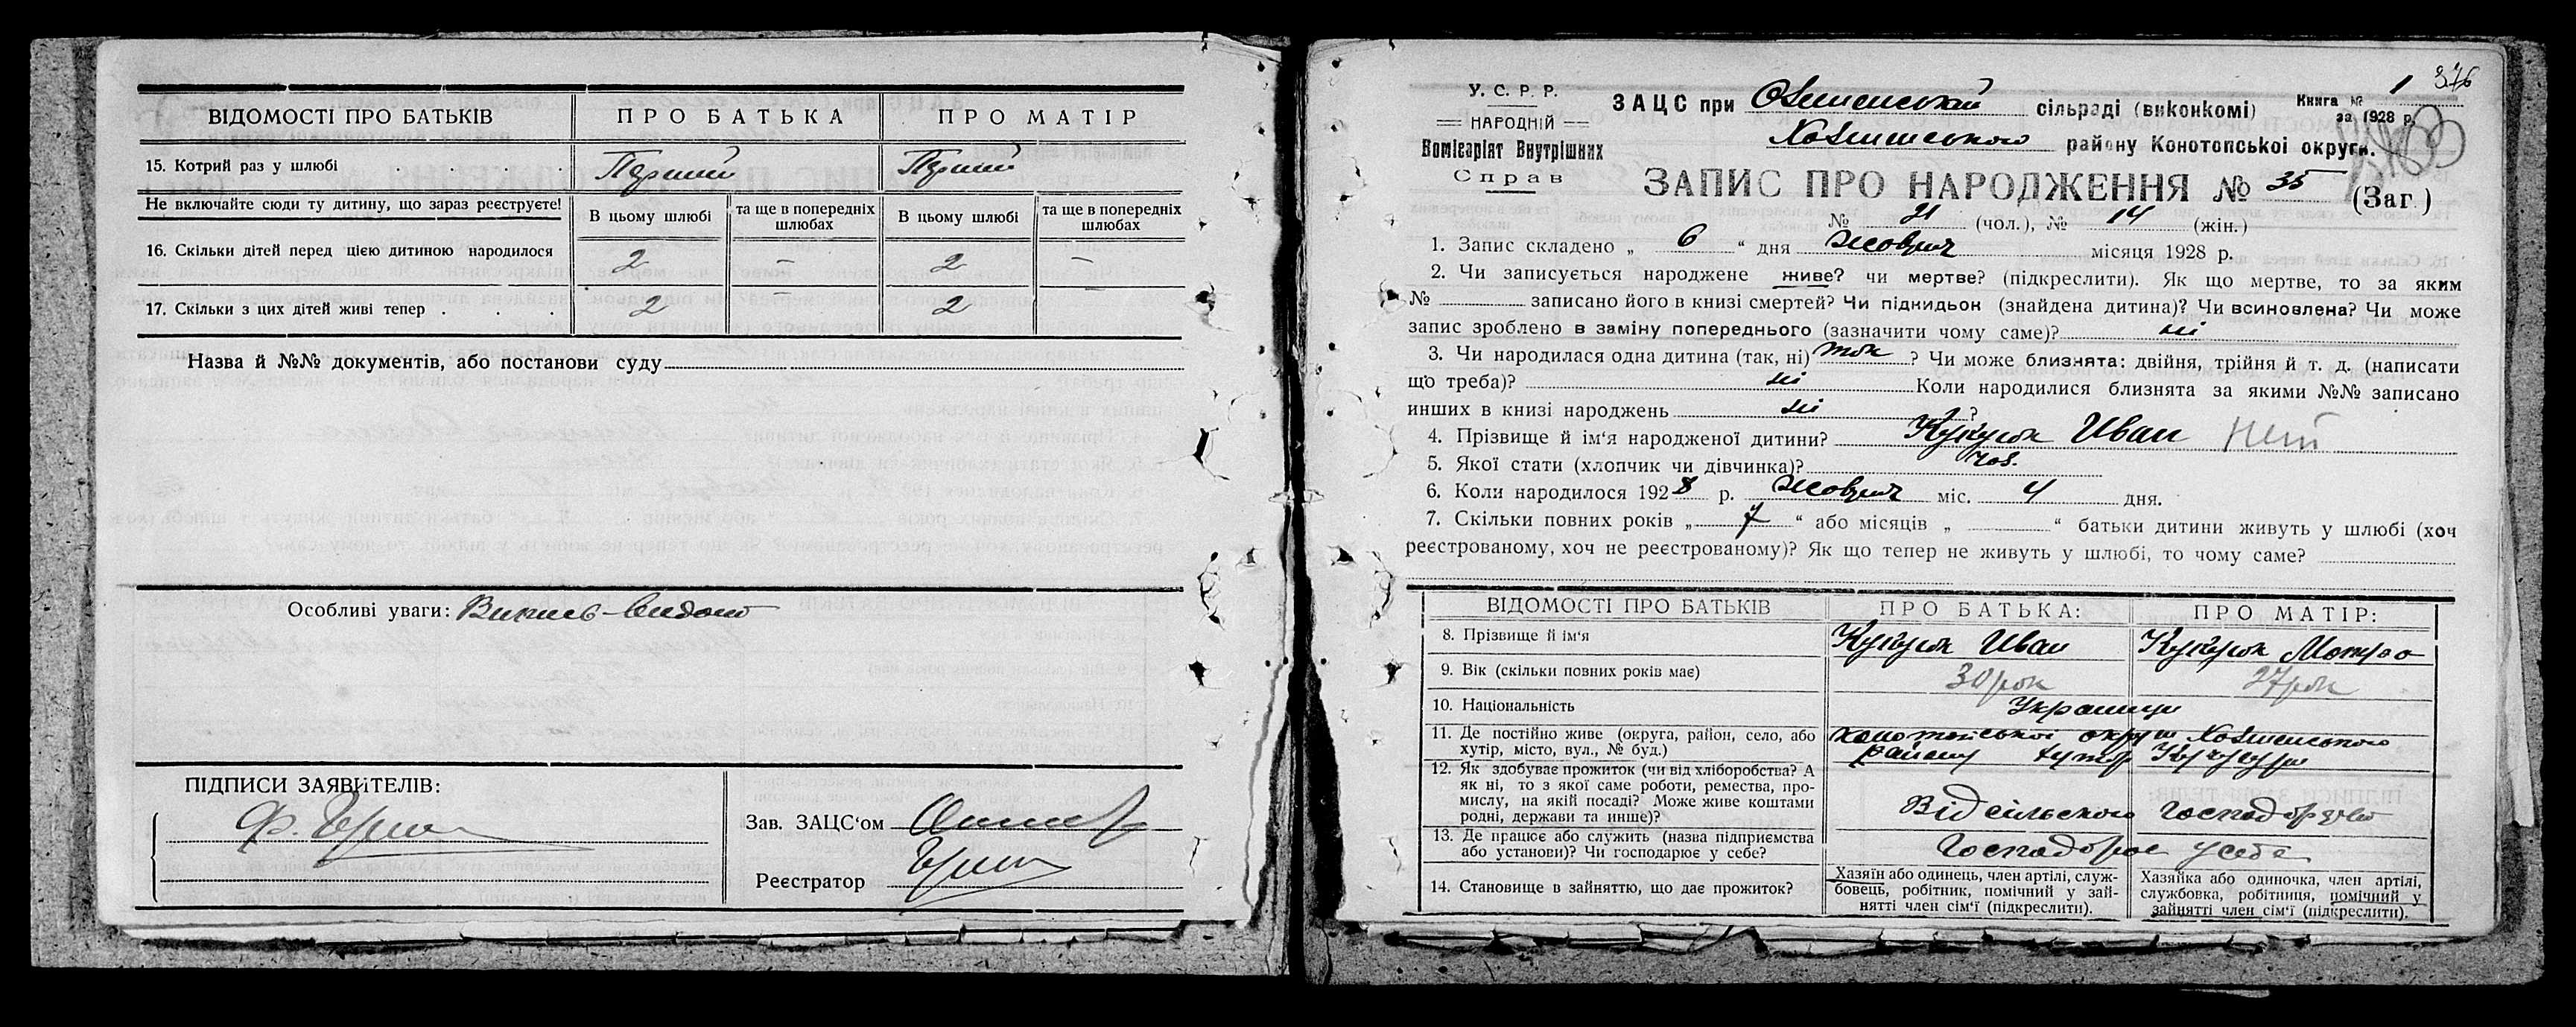 ВІДОМОСТІ ПРО БАТЬКІВ ПРО БАТЬКА ПРО МАТІР
15. Котрий раз у шлюбі . . . Перший Перший
Не включайте сюди ту дитину, що зараз реєструєте! В цьому шлюбі та ще в попередніх шлюбах В цьому шлюбі та ще в попередніх шлюбах
16. Скільки дітей перед цією дитиною народилося 2 – 2 –
17. Скільки з цих дітей живі тепер . . . 2 – 2
Назва й №№ документів, або постанови суду
Особливі уваги: Випись
ПІДПИСИ ЗАЯВИТЕЛІВ:
Ф.
Зав. ЗАЦС‘ом
Реєстратор
376
У. С. Р. Р.
НАРОДНІЙ
Комісаріят Внутрішніх
Справ
ЗАЦС при сільраді (виконкомі)
Книга № 1
за 1928 р.
району Конотопської округи.
ЗАПИС ПРО НАРОДЖЕННЯ № 35 (Заг.)
№ 21 (чол.), № 14 (жін.)
1. Запис складено „ 6 “ дня жовтня місяця 1928 р.
2. Чи записується народжене живе? чи мертве? (підкреслити). Як що мертве, то за яким
№ записано його в книзі смертей? Чи підкидьок (знайдена дитина)? Чи всиновлена? Чи може
запис зроблено в заміну попереднього (зазначити чому саме)? ні
3. Чи народилася одна дитина (так, ні) так ? Чи може близнята: двійня, трійня й т. д. (написати
що треба)? ні Коли народилися близнята за якими №№ записано
инших в книзі народжень ні ?
4. Прізвище й ім‘я народженої дитини? Иван
5. Якої стати (хлопчик чи дівчинка)? чол.
6. Коли народилося 1928 р. жовтня міс. 4 дня.
7. Скільки повних років „ 7 “ або місяців „ “ батьки дитини живуть у шлюбі (хоч
реєстрованому, хоч не реєстрованому)? Як що тепер не живуть у шлюбі, то чому саме?
ВІДОМОСТІ ПРО БАТЬКІВ ПРО БАТЬКА: ПРО МАТІР:
8. Прізвище й ім‘я Иван
9. Вік (скільки повних років має) 30 рок 27 рок
10. Національність Украинци
11. Де постійно живе (округа, район, село, або
хутір, місто, вул., № буд.) Конотопської округи
району хутір
12. Як здобуває прожиток (чи від хліборобства? А
як ні, то з якої саме роботи, ремества, про-
мислу, на якій посаді? Може живе коштами
родні, держави та инше)? Від сільского господарства
13. Де працює або служить (назва підприємства
або установи)? Чи господарює у себе? Господарює у себе
14. Становище в зайняттю, що дає прожиток?
Хазяїн або одинець, член артілі, служ-
бовець, робітник, помічний у зай-
нятті член сім‘ї (підкреслити).
Хазяйка або одиночка, член артілі,
службовка, робітниця, помічний у
зайнятті член сім‘ї (підкреслити).